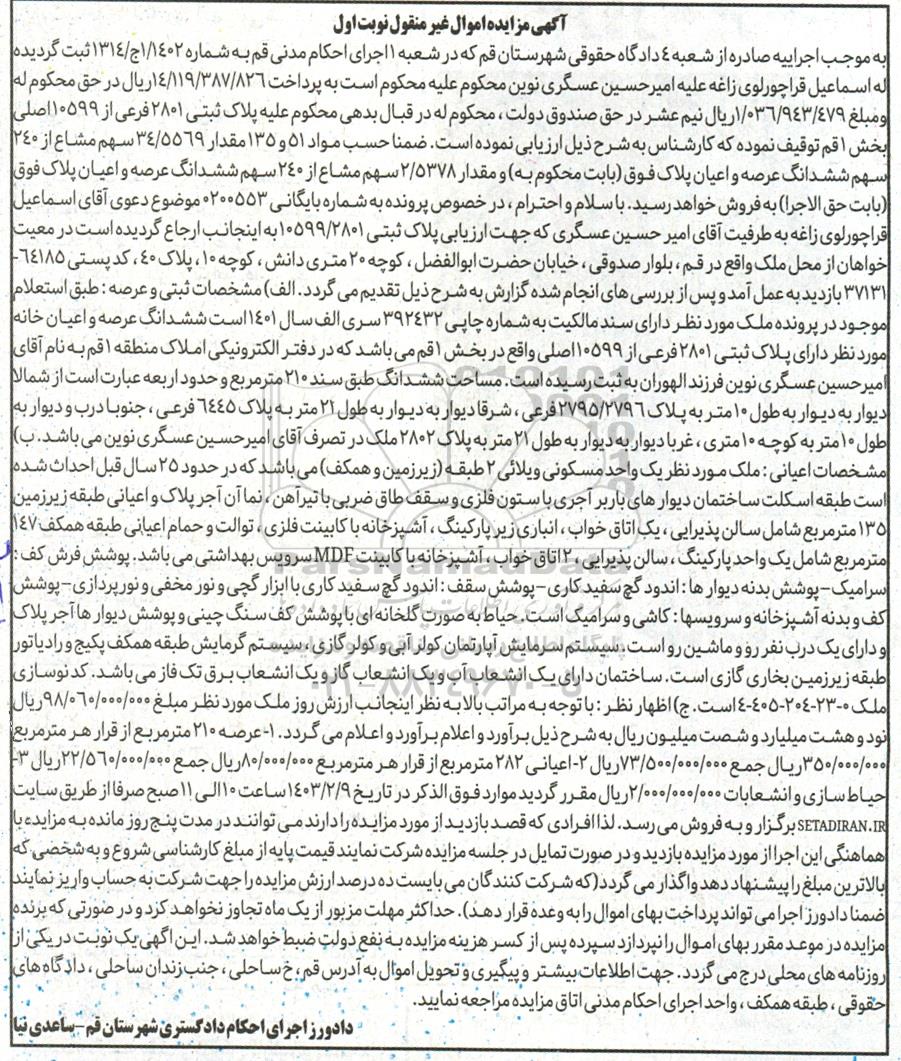 آگهی مزایده اموال غیر منقول نوبت اول
به موجب اجراییه صادره از شعبه ۴ دادگاه حقوقی شهرستان قم که در شعبه ۱ اجرای احکام مدنی قم به شماره ۱/۱۴۰۲ج/۱۳۱۴ ثبت گردیده
له اسماعیل قراچورلوی زاغه علیه امیرحسین عسگری نوین محکوم علیه محکوم است به پرداخت ۱۴/۱۱۹/۳۸۷/۸۲۶ ریال در حق محکوم له
ومبلغ ۱/۰۳۶/۹۴۳/۴۷۹ ریال نیم عشر در حق صندوق دولت ، محکوم له در قبال بدهی محکوم علیه پلاک ثبتی ۲۸۰۱ فرعی از ۱۰۵۹۹ اصلی
بخش ۱ قم توقیف نموده که کارشناس به شرح ذیل ارزیابی نموده است. ضمنا حسب مواد ۵۱ و ۱۳۵ مقدار ۳۴/۵۵۶۹ سهم مشاع از ۲۴۰
سهم ششدانگ عرصه و اعیان پلاک فوق (بابت محکوم به) و مقدار ۲/۵۳۷۸ سهم مشاع از ۲۴۰ سهم ششدانگ عرصه و اعیان پلاک فوق
(بابت حق الاجرا) به فروش خواهد رسید. با سلام و احترام ، در خصوص پرونده به شماره بایگانی ۰۲۰۰۵۵۳ موضوع دعوی آقای اسماعیل
قراچورلوی زاغه به طرفیت آقای امیر حسین عسگری که جهت ارزیابی پلاک ثبتی ۱۰۵۹۹/۲۸۰۱ به اینجانب ارجاع گردیده است در معیت
خواهان از محل ملک واقع در قم ، بلوار صدوقی ، خیابان حضرت ابوالفضل ، کوچه ۲۰ متری دانش ، کوچه ۱۰ ، پلاک ۴۰ ، کد پستی ۶۴۱۸۵-
۳۷۱۳۱ بازدید به عمل آمد و پس از بررسی های انجام شده گزارش به شرح ذیل تقدیم می گردد. الف) مشخصات ثبتی و عرصه : طبق استعلام
موجود در پرونده ملک مورد نظر دارای سند مالکیت به شماره چاپی ۳۹۲۴۳۲ سری الف سال ۱۴۰۱ است ششدانگ عرصه و اعیان خانه
مورد نظر دارای پلاک ثبتی ۲۸۰۱ فرعی از ۱۰۵۹۹ اصلی واقع در بخش ۱ قم می باشد که در دفتر الکترونیکی املاک منطقه ۱ قم به نام آقای
امیرحسین عسگری نوین فرزند الهوران به ثبت رسیده است. مساحت ششدانگ طبق سند ۲۱۰ مترمربع و حدود اربعه عبارت است از شمالا
دیوار به دیوار به طول ۱۰ متر به پلاک ۲۷۹۵/۲۷۹۶ فرعی ، شرقا دیوار به دیوار به طول ۲۱ متر به پلاک ۶۴۴۵ فرعی ، جنوبا درب و دیوار به
طول ۱۰ متر به کوچه ۱۰ متری ، غربا دیوار به دیوار به طول ۲۱ متر به پلاک ۲۸۰۲ ملک در تصرف آقای امیرحسین عسگری نوین می باشد. ب)
مشخصات اعیانی : ملک مورد نظر یک واحد مسکونی ویلائی ۲ طبقه (زیرزمین و همکف) می باشد که در حدود ۲۵ سال قبل احداث شده
است طبقه اسکلت ساختمان دیوار های باربر آجری با ستون فلزی و سقف طاق ضربی با تیرآهن ، نما آن آجر پلاک و اعیانی طبقه زیرزمین
۱۳۵ مترمربع شامل سالن پذیرایی ، یک اتاق خواب ، انباری زیر پارکینگ ، آشپزخانه با کابینت فلزی ، توالت و حمام اعیانی طبقه همکف ۱۴۷
مترمربع شامل یک واحد پارکینگ ، سالن پذیرایی ، ۲ اتاق خواب ، آشپزخانه با کابینت MDF سرویس بهداشتی می باشد. پوشش فرش کف :
سرامیک – پوشش بدنه دیوار ها : اندود گچ سفید کاری – پوشش سقف : اندود گچ سفید کاری با ابزار گچی و نور مخفی و نورپردازی – پوشش
کف و بدنه آشپزخانه و سرویسها : کاشی و سرامیک است. حیاط به صورت گلخانه ای با پوشش کف سنگ چینی و پوشش دیوار ها آجر پلاک
و دارای یک درب نفر رو و ماشین رو است. سیستم سرمایش آپارتمان کولر آبی و کولر گازی ، سیستم گرمایش طبقه همکف پکیج و رادیاتور
طبقه زیرزمین بخاری گازی است. ساختمان دارای یک انشعاب آب و یک انشعاب گاز و یک انشعاب برق تک فاز می باشد. کد نوسازی
ملک ۰-۲۳-۲۰۴-۴۰۵-۴ است. ج) اظهار نظر : با توجه به مراتب بالا به نظر اینجانب ارزش روز ملک مورد نظر مبلغ ۹۸/۰۶۰/۰۰۰/۰۰۰ ریال
نود و هشت میلیارد و شصت میلیون ریال به شرح ذیل برآورد و اعلام برآورد و اعلام می گردد. ۱- عرصه ۲۱۰ مترمربع از قرار هر مترمربع
۳۵۰/۰۰۰/۰۰۰ ریال جمع ۷۳/۵۰۰/۰۰۰/۰۰۰ ریال ۲- اعیانی ۲۸۲ مترمربع از قرار هر مترمربع ۸۰/۰۰۰/۰۰۰ ریال جمع ۲۲/۵۶۰/۰۰۰/۰۰۰ ریال ۳-
حیاط سازی و انشعابات ۲/۰۰۰/۰۰۰/۰۰۰ ریال مقرر گردید موارد فوق الذکر در تاریخ ۱۴۰۳/۲/۹ ساعت ۱۰ الی ۱۱ صبح صرفا از طریق سایت
SETADIRAN.IR برگزار و به فروش می رسد. لذا افرادی که قصد بازدید از مورد مزایده را دارند می توانند در مدت پنج روز مانده به مزایده با
هماهنگی این اجرا از مورد مزایده بازدید و در صورت تمایل در جلسه مزایده شرکت نمایند قیمت پایه از مبلغ کارشناسی شروع و به شخصی که
بالاترین مبلغ را پیشنهاد دهد واگذار می گردد (که شرکت کنندگان می بایست ده درصد ارزش مزایده را جهت شرکت به حساب واریز نمایند
ضمنا دادورز اجرا می تواند پرداخت بهای اموال را به وعده قرار دهد). حداکثر مهلت مزبور از یک ماه تجاوز نخواهد کرد و در صورتی که برنده
مزایده در موعد مقرر بهای اموال را نپردازد سپرده پس از کسر هزینه مزایده به نفع دولت ضبط خواهد شد. این اگهی یک نوبت در یکی از
روزنامه های محلی درج می گردد. جهت اطلاعات بیشتر و پیگیری و تحویل اموال به آدرس قم ، خ ساحلی ، جنب زندان ساحلی ، دادگاه های
حقوقی ، طبقه همکف ، واحد اجرای احکام مدنی اتاق مزایده مراجعه نمایید.
دادورز اجرای احکام دادگستری شهرستان قم – ساعدی نیا
ParsNamadData
۰۲۱-۸۸۳۴۹۶۷۰-۵